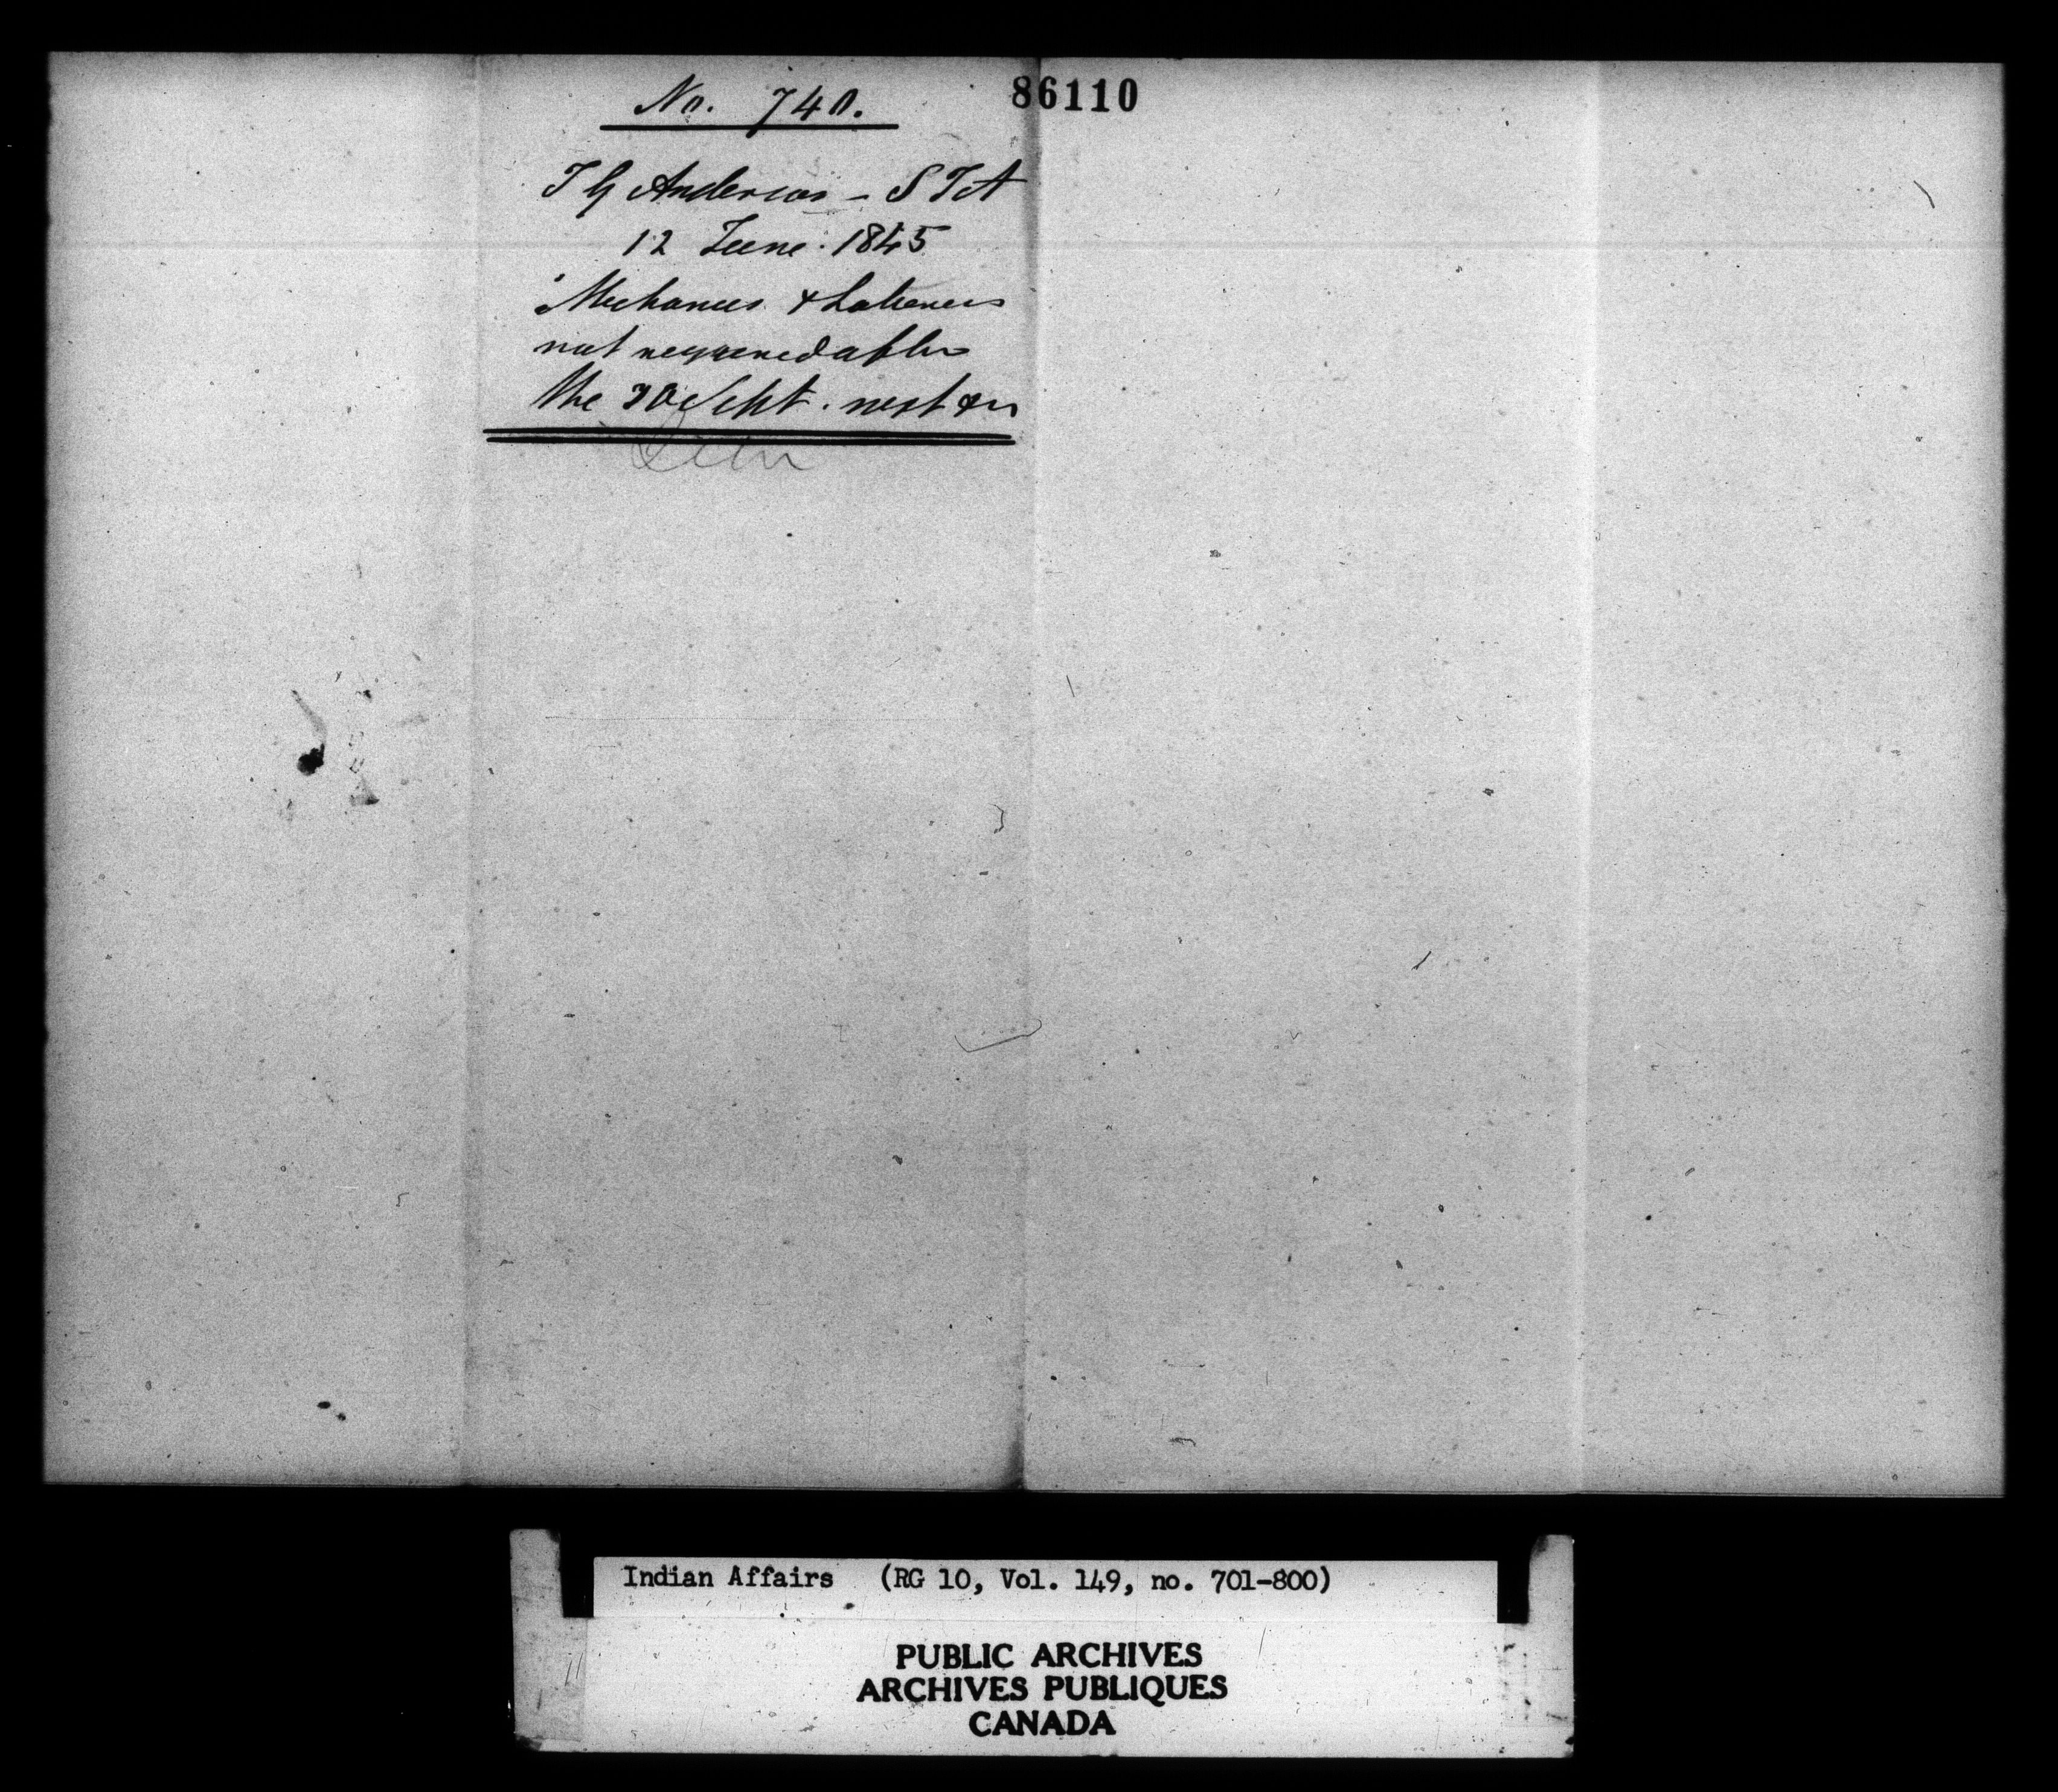 No. 740.
86110
T G Anderson - S I A
12 June. 1845
Mechanics & Laborers
not required after
the 30 Sept. next &c
Indian Affairs (RG 10, Vol. 149, no. 701-800)
PUBLIC ARCHIVES
ARCHIVES PUBLIQUES
CANADA